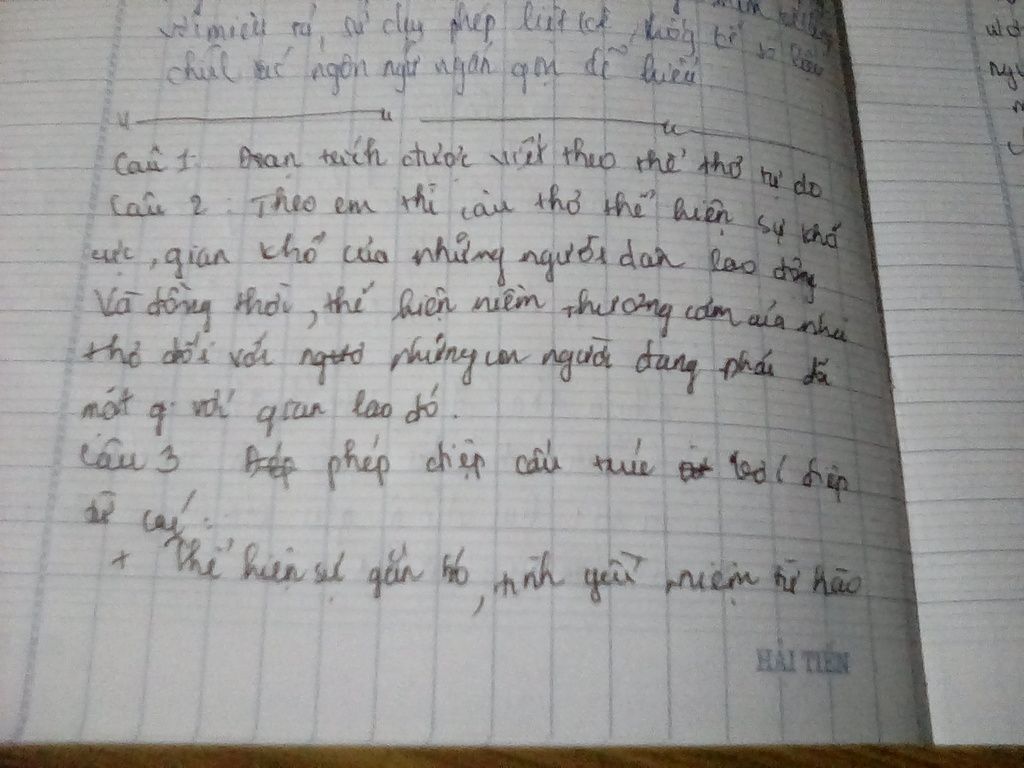 với miêu tả, sử dụng phép liệt kê,
ngôn ngữ ngắn gọn dễ hiểu
Câu 1: Đoạn trích được viết theo thể thơ tự do
Câu 2: Theo em thì câu thơ thể hiện sự khổ
cực, gian khổ của những người dan lao động
Và đồng thời, thể hiện niềm thương cảm của nhà
thơ đối với những con người đang phải
một với gian lao đó.
Câu 3 phép điệp cấu trúc
cấy:
+ Thể hiện sự gắn bó, tình yêu, niệm tự hào
HẢI TIẾN